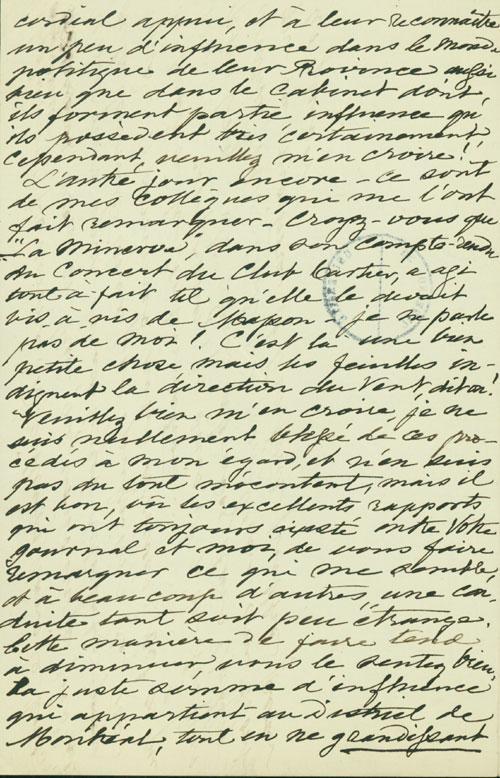 cordial appui, et à leur reconnaître
un peu d'influence dans le monde
politique de leur Province aussi
peu que dans le cabinet dont
ils forment partie, influence qu'
ils possèdent très certainement,
cependant, veuillez m'en croire!!
L'autre jour encore - ce sont
de mes collègues qui me l'ont
fait remarquer - croyez-vous que
"La Minerve", dans son compte-rendu
du Concert du Club Cartier, a agi
tout à fait tel qu'elle le devait
vis à vis de Masson - je ne parle
pas de moi! C'est là une bien
petite chose, mais les feuilles in-
diquent la direction du vent, dit on!
Veuillez bien m'en croire, je ne
suis nullement blessé de ces pro-
cédés à mon égard, et n'en suis
pas du tout mécontent, mais il
est bon, vu les excellents rapports
qui ont toujours existé entre votre
journal et moi, de vous faire
remarquer ce qui me semble,
et à beaucoup d'autres une con-
duite tant soit peu étrange.
Cette manière de faire tend
à diminuer, vous le sentez bien,
la juste somme d'influence
qui appartient au District de
Montréal, tout en ne grandissant